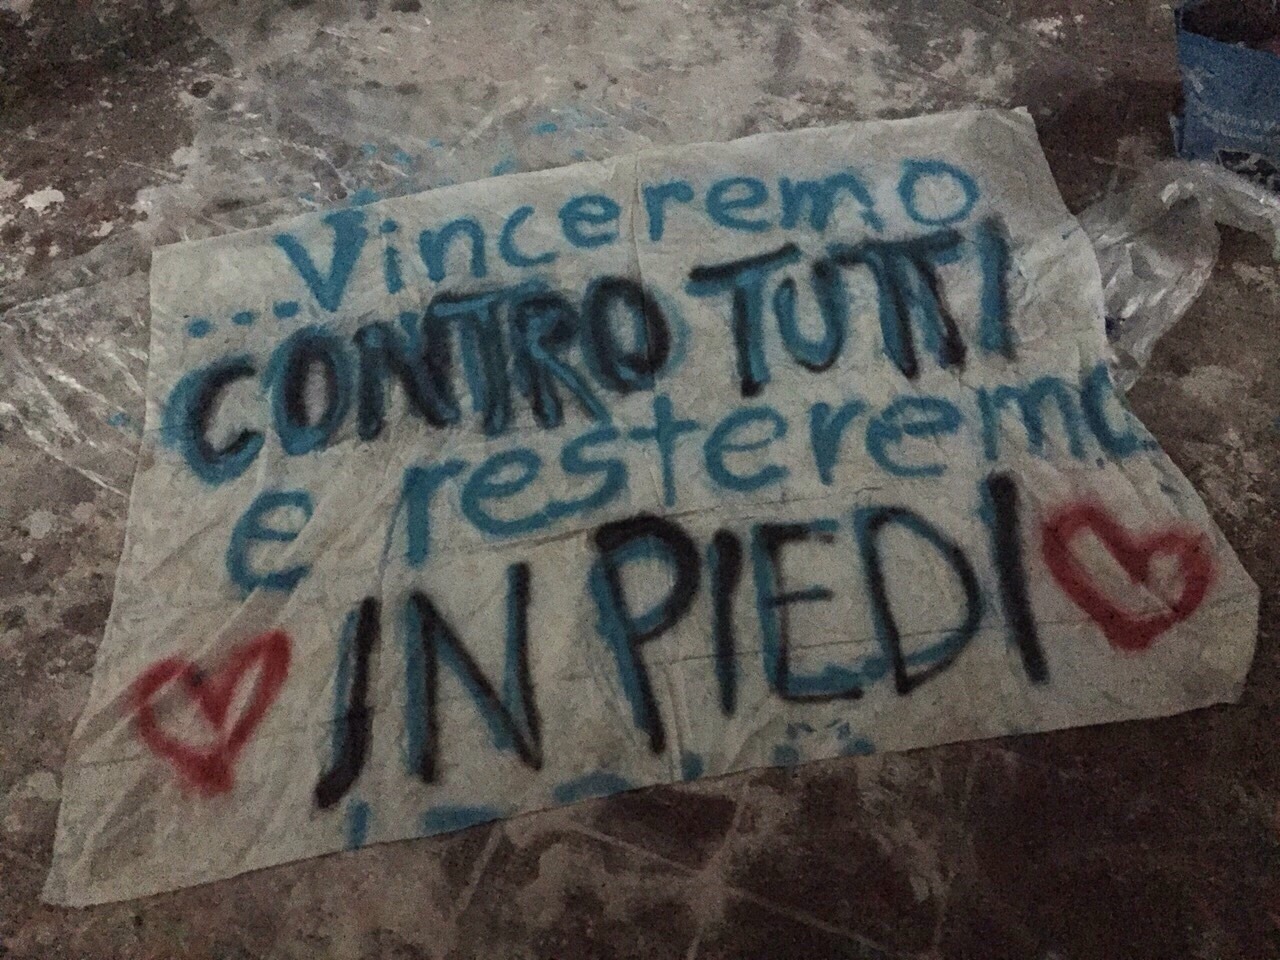 ...Vinceremo
CONTRO TUTTI
e resteremo
IN PIEDI